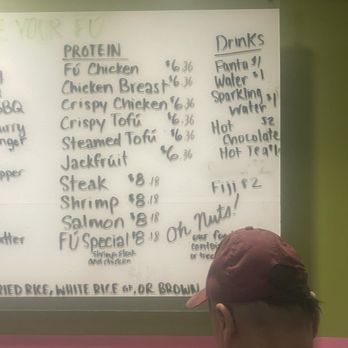 E YOUR FÚ
PROTEIN
FÚ Chicken $6.36
Chicken Breast $6.36
Crispy Chicken $6.36
Crispy Tofú $6.36
Steamed Tofú $6.36
Jackfruit $6.36
Steak $8.18
Shrimp $8.18
Salmon $8.18
FÚ Special $8.18
Shrimp, steak
and chicken
Drinks
Fanta $1
Water $1
Sparkling
Water $1
Hot $2
Chocolate
Hot Tea $1
Fiji $2
Oh Nuts!
our
BBQ
urry
nger
pper
tter
RIED RICE, WHITE RICE GF, OR BROWN